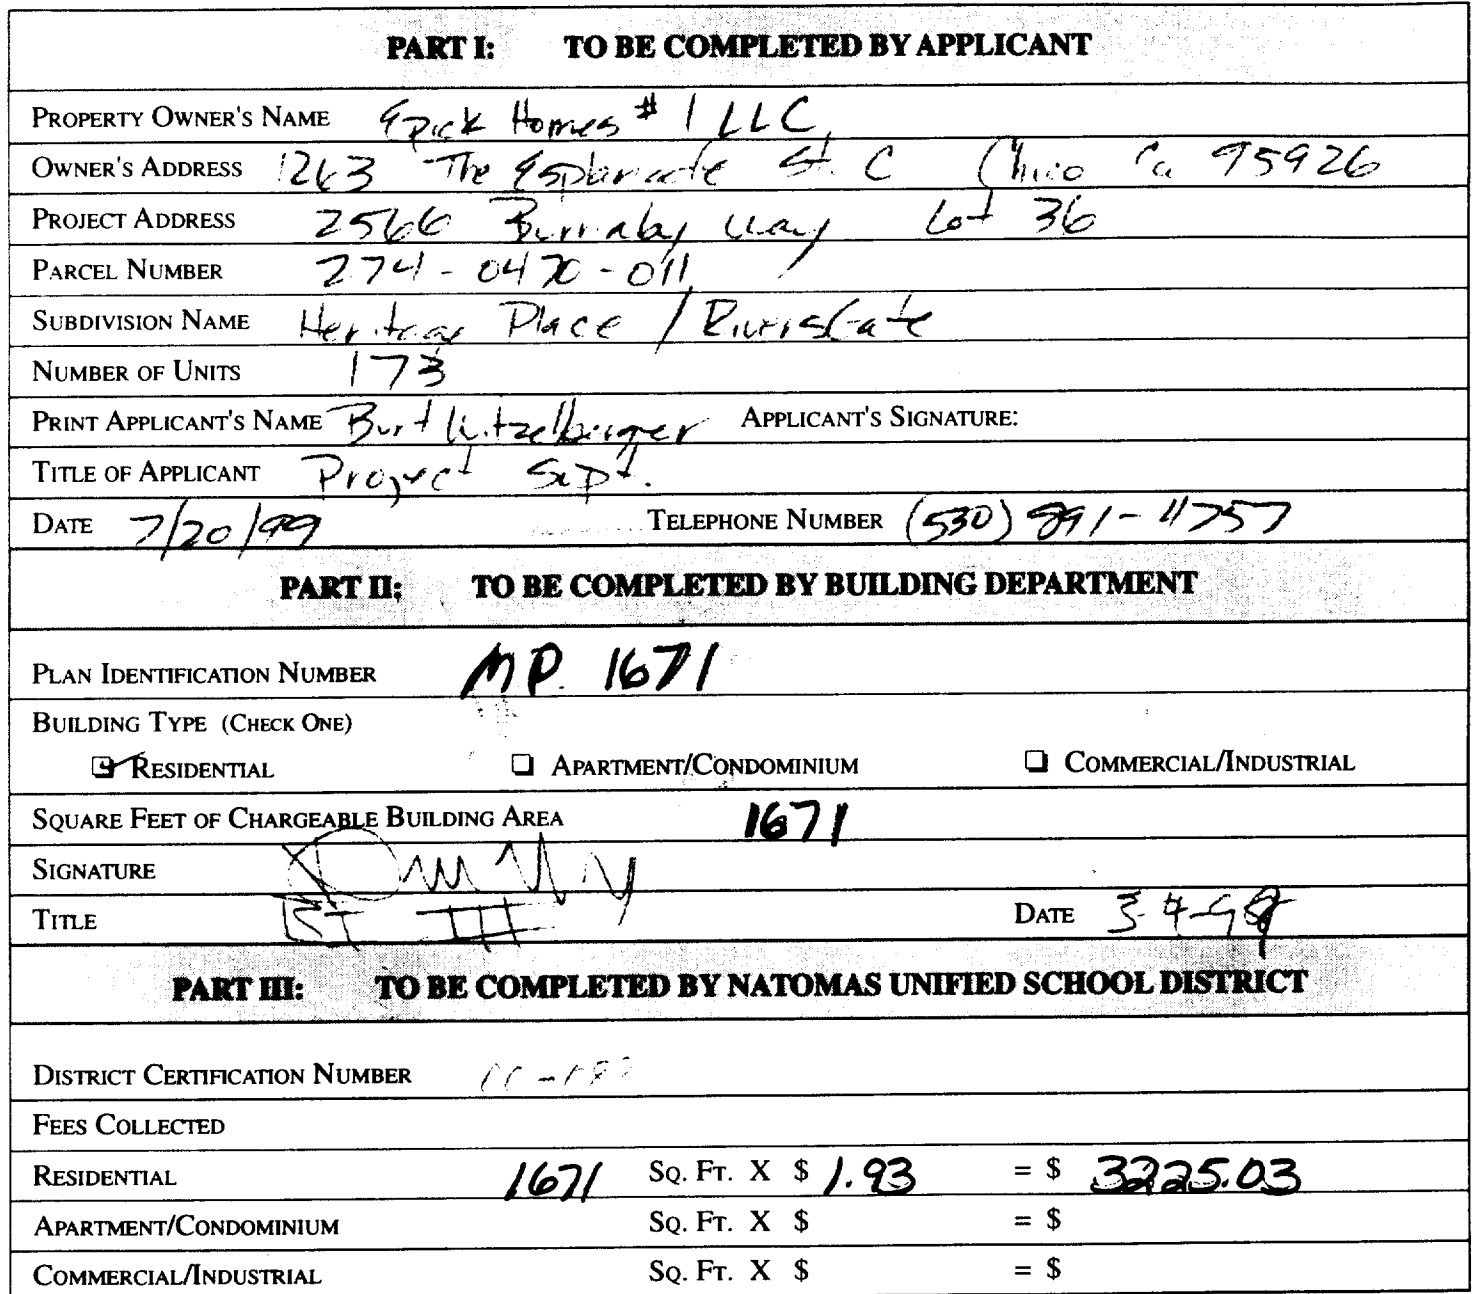 PART I: TO BE COMPLETED BY APPLICANT
PROPERTY OWNER'S NAME Epick Homes #1 LLC
OWNER'S ADDRESS 1263 The Esplanade St. C Chico Ca 95926
PROJECT ADDRESS 2566 Burnaby Way Lot 36
PARCEL NUMBER 274-0470-011
SUBDIVISION NAME Heritage Place / RiversGate
NUMBER OF UNITS 173
PRINT APPLICANT'S NAME Burt APPLICANT'S SIGNATURE:
TITLE OF APPLICANT Project Supt.
DATE 7/20/99 TELEPHONE NUMBER (530) 891-4757
PART II: TO BE COMPLETED BY BUILDING DEPARTMENT
PLAN IDENTIFICATION NUMBER MP. 1671
BUILDING TYPE (CHECK ONE)
RESIDENTIAL APARTMENT/CONDOMINIUM COMMERCIAL/INDUSTRIAL
SQUARE FEET OF CHARGEABLE BUILDING AREA 1671
SIGNATURE
TITLE III DATE
PART III: TO BE COMPLETED BY NATOMAS UNIFIED SCHOOL DISTRICT
DISTRICT CERTIFICATION NUMBER
FEES COLLECTED
RESIDENTIAL 1671 SQ. FT. X $ 1.93 = $ 3225.03
APARTMENT/CONDOMINIUM SQ. FT. X $ = $
COMMERCIAL/INDUSTRIAL SQ. FT. X $ = $